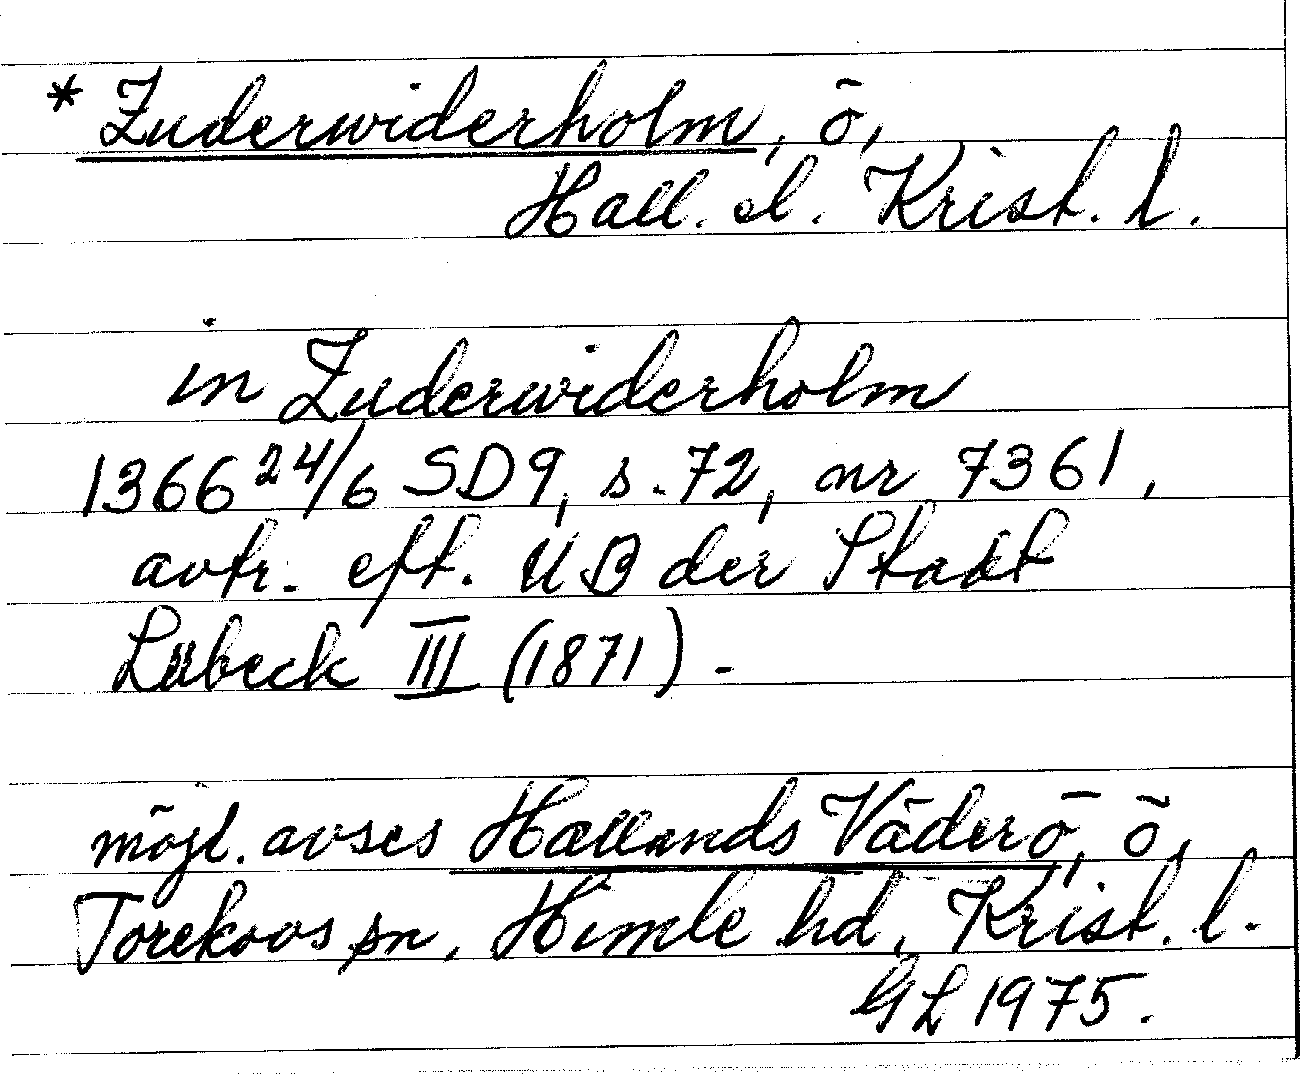 * Zuderwiderholm, ö,
Hall. el. Krist. l.
in Zuderwiderholm
1366 24/6 SD9, s. 72, nr 7361,
avtr. eft. UB der Stadt
Lübeck III (1871).
möjl. avses Hallands Väderö, ö,
Torekovs sn, Himle hd, Krist. l.
GL 1975.